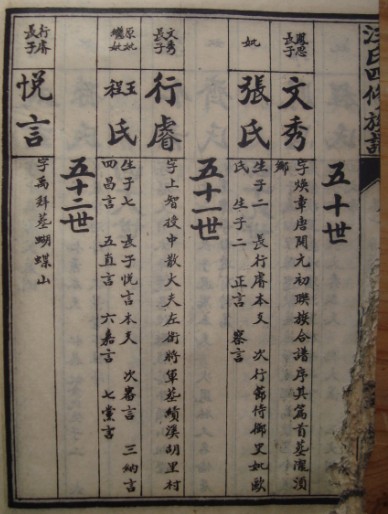 汪氏四修族譜
五十世
鳳思長子
文秀
字煥章唐開元初聯族合譜序其篇首墓瀧湏
鄉
妣
張氏
生子二 長行睿本支 次行節侍御史妣歐
氏 生子二 正言 察言
五十一世
文秀長子
行睿
字上智授中散大夫左衛將軍墓績溪胡里村
原妣 王
繼妣 程
氏
生子七 長子悅言本支 次審言 三納言
四昌言 五直言 六嘉言 七黨言
五十二世
行睿長子
悅言
字禹拜墓蝴蝶山